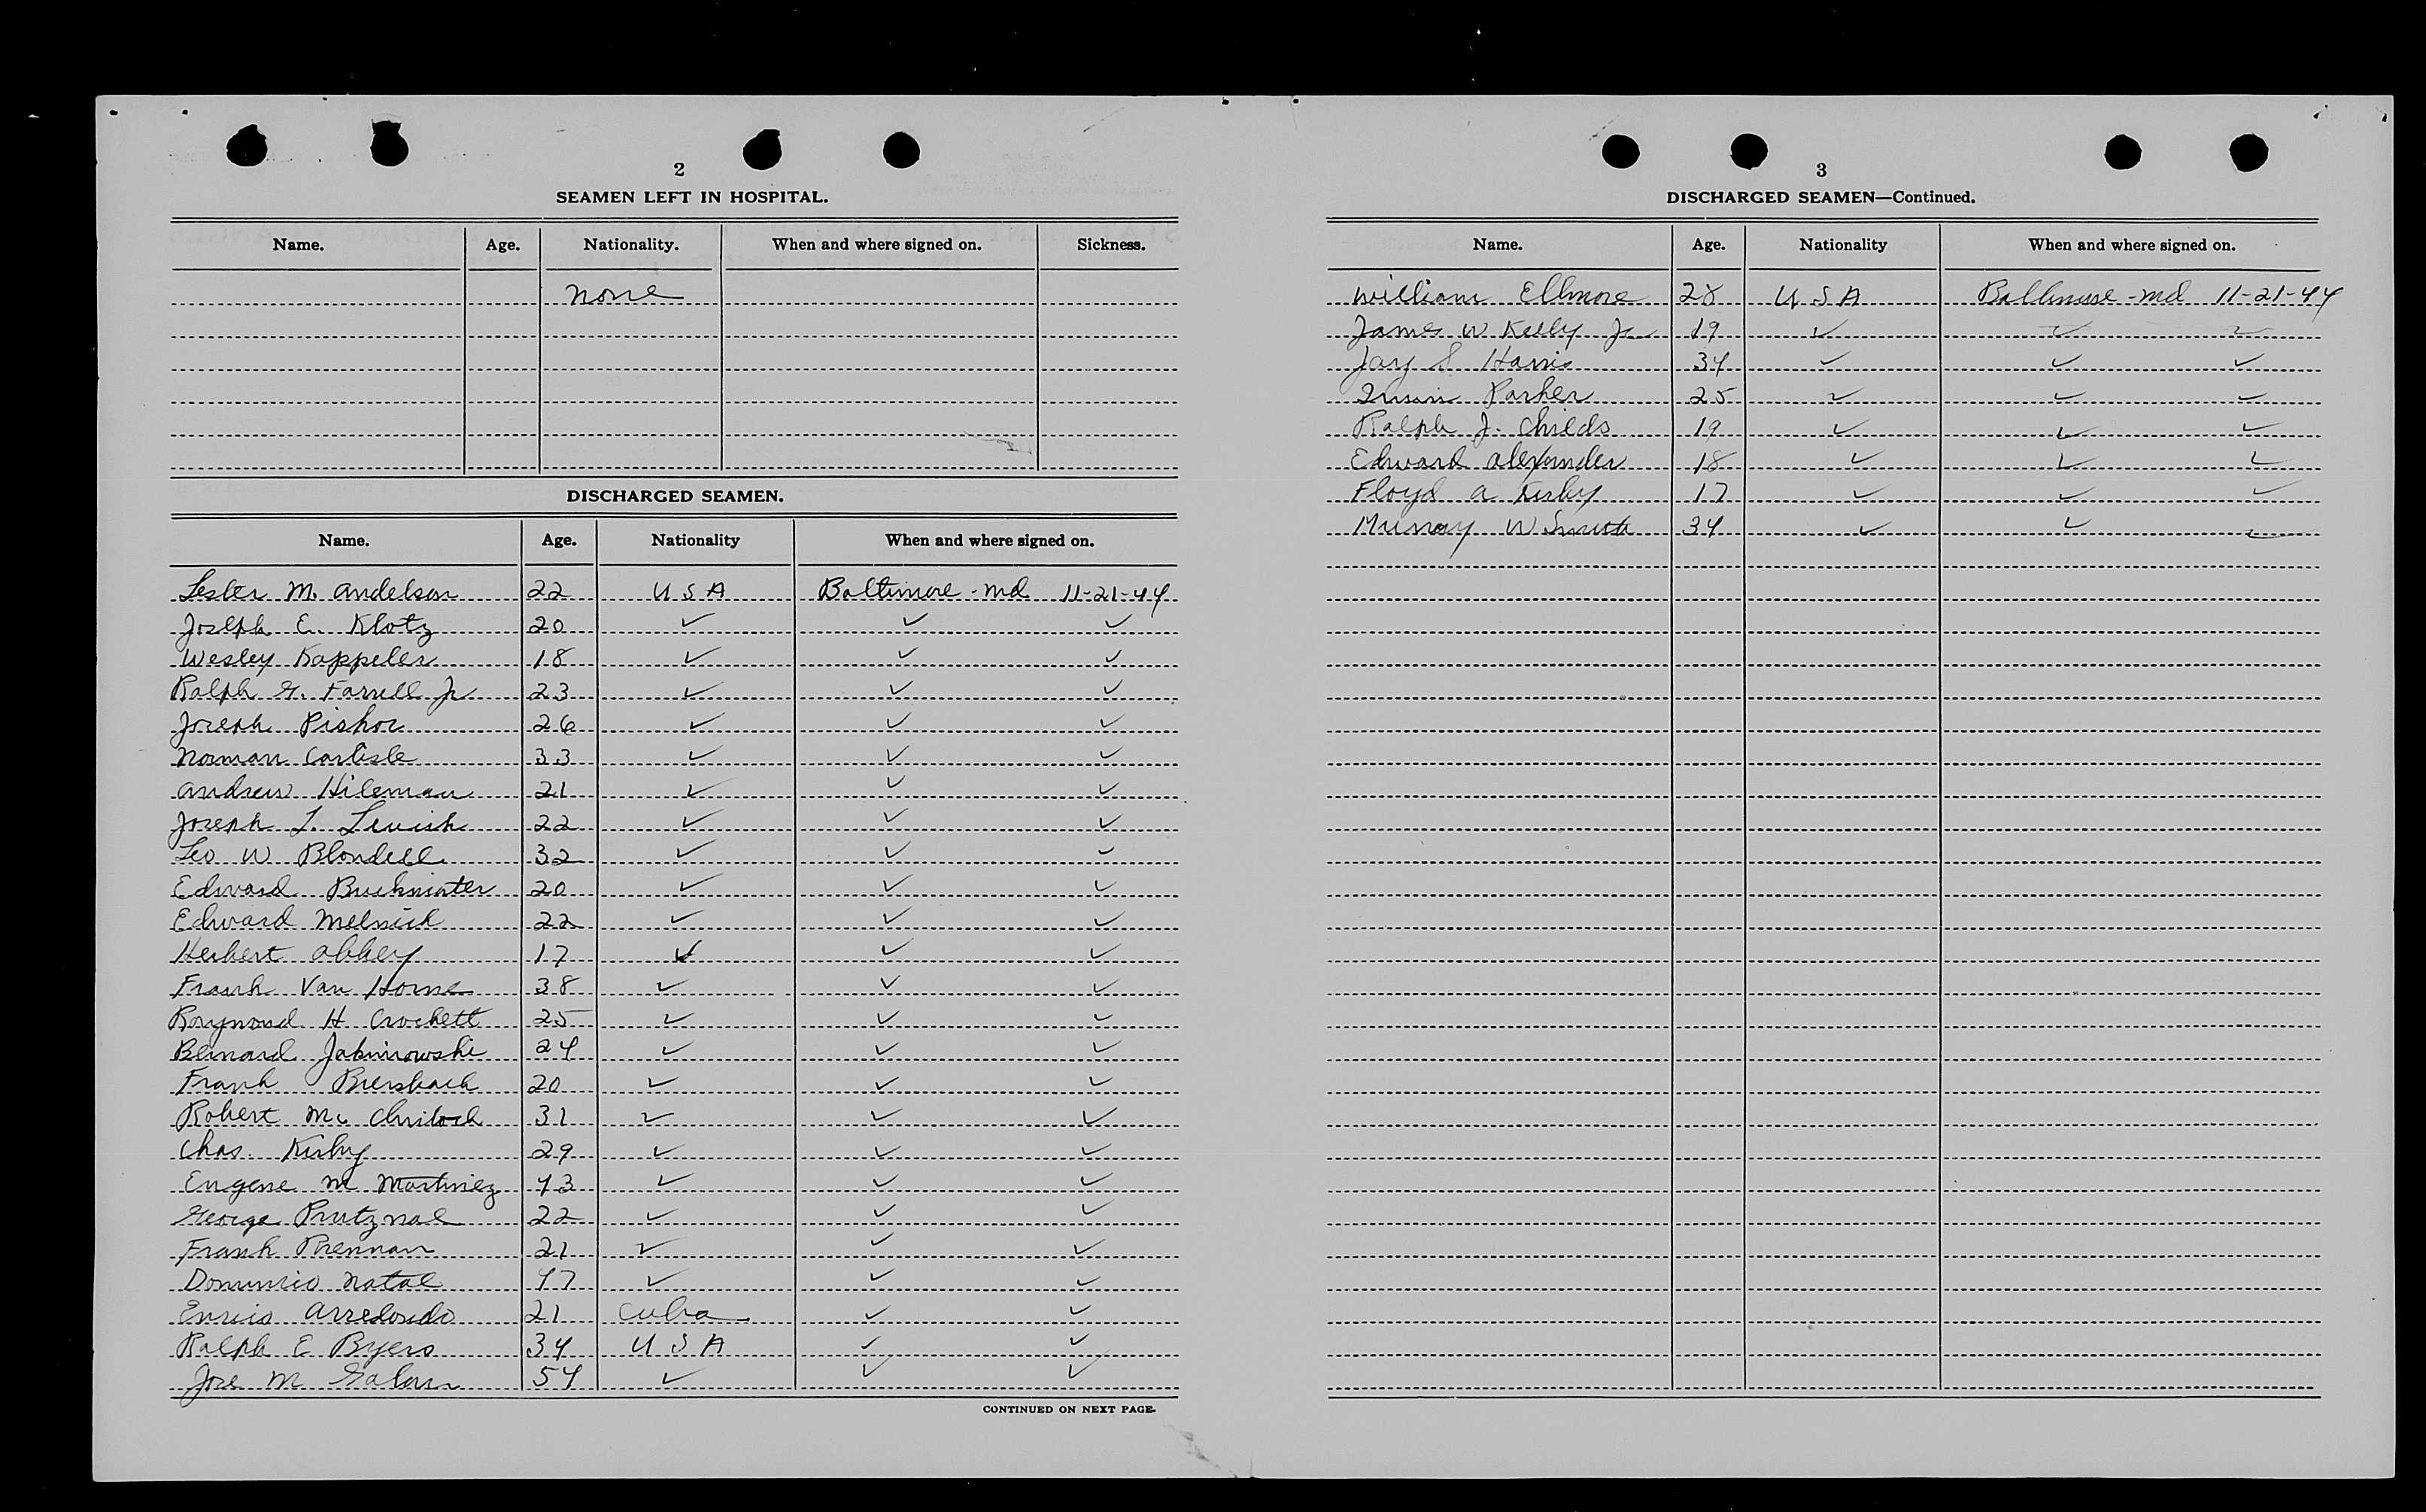 2
SEAMEN LEFT IN HOSPITAL.
Name. Age. Nationality. When and where signed on. Sickness.
None
DISCHARGED SEAMEN.
Name. Age. Nationality When and where signed on.
Lester M. Andelson 22 U S A Baltimore - Md 11-21-44
Joseph E. Klotz 20 ✓ ✓ ✓
Wesley Kappeler 18 ✓ ✓ ✓
Ralph G. Farrell Jr 23 ✓ ✓ ✓
Joseph Pishor 26 ✓ ✓ ✓
Norman Carlisle 33 ✓ ✓ ✓
Andrew Hileman 21 ✓ ✓ ✓
Joseph L. 22 ✓ ✓ ✓
Leo W Blondell 32 ✓ ✓ ✓
Edward 20 ✓ ✓ ✓
Edward Melnick 22 ✓ ✓ ✓
Herbert Abbey 17 ✓ ✓ ✓
Frank Van Horne 38 ✓ ✓ ✓
Raymond H Crockett 25 ✓ ✓ ✓
Bernard Jakimowski 24 ✓ ✓ ✓
Frank Biersbach 20 ✓ ✓ ✓
Robert Mc 31 ✓ ✓ ✓
Chas. Kirby 29 ✓ ✓ ✓
Eugene M Martinez 43 ✓ ✓ ✓
George Prutznal 22 ✓ ✓ ✓
Frank Brennan 21 ✓ ✓ ✓
Dominico Natal 47 ✓ ✓ ✓
Arredondo 21 Cuba ✓ ✓
Ralph E Byers 34 U S A ✓ ✓
Jose M Galan 54 ✓ ✓ ✓
CONTINUED ON NEXT PAGE.
3
DISCHARGED SEAMEN—Continued.
Name. Age. Nationality When and where signed on.
William Ellmore 28 U S A Baltimore - Md 11-21-44
James W Kelly Jr 19 ✓ ✓ ✓
Jay S Harris 34 ✓ ✓ ✓
Parker 25 ✓ ✓ ✓
Ralph J. Childs 19 ✓ ✓ ✓
Edward Alexander 18 ✓ ✓ ✓
Floyd A Kirby 17 ✓ ✓ ✓
Murray W Smith 34 ✓ ✓ ✓